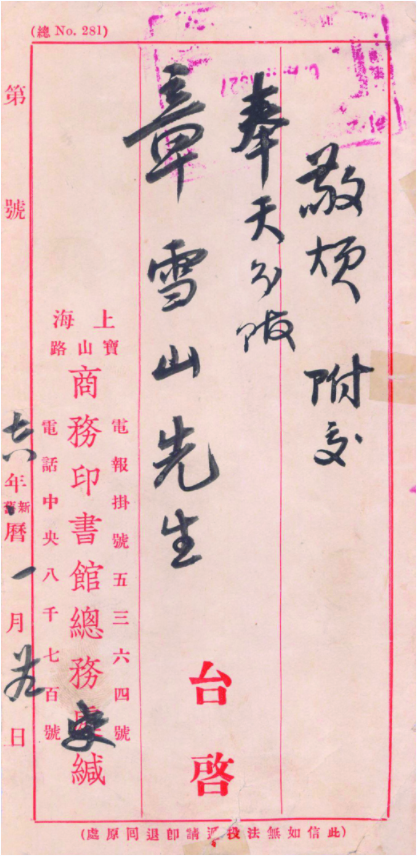 (總 No. 281)
敬煩 附交
奉天分館
章雪山先生
台啓
電報掛號五三六四號
上海
寶山路
商務印書館總務處緘
電話中央八千七百號
第 號
年新舊曆一月 日
(此信如無法投遞請卽退回原處)